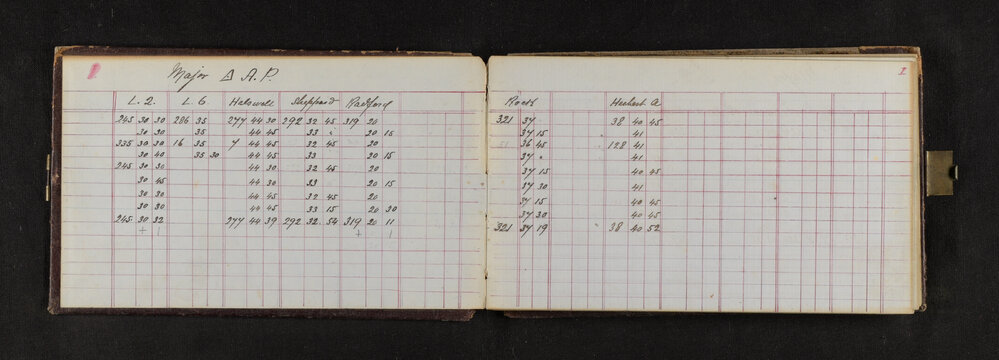 1
Major △ A.P.
L. 2. L 6 Halswell Sheppard Radford
245 30 30 206 35 277 44 30 292 32 45 319 20
30 30 35 44 45 33 " 20 15
335 30 30 16 35 7 44 45 32 45 20
30 40 35 30 44 45 33 20 15
245 30 30 44 30 32 45 20
30 45 44 30 33 20 15
30 30 44 45 32 45 20
30 30 44 45 33 15 20 30
245 30 32 277 44 39 292 32 54 319 20 11
+ 1 + 1
1
Herbert A
321 37 38 40 45
37 15 41
51 36 45 128 41
37 " 41
37 15 40 45
37 30 41
37 15 40 45
37 30 40 45
321 37 19 38 40 52